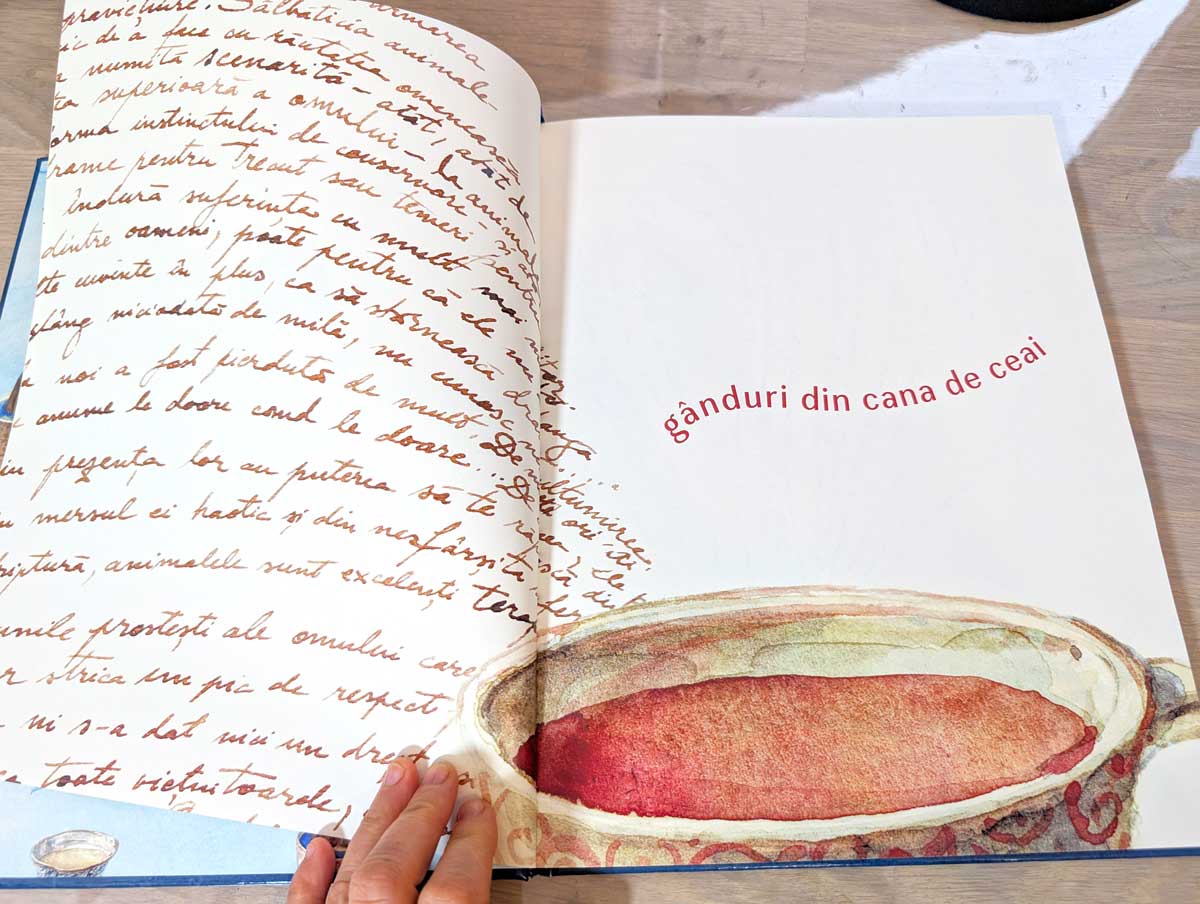 praviețuire. Sălbăticia animale-
ic de a face cu răutatea omenească
numita scenarită - atât, atât de
superioară a omului - la animale
instinctului de conservare - și atât
pentru trecut sau temeri pentru
îndură suferința cu mult mai
dintre oameni, poate pentru că ele nu
cuvinte în plus, ca să stârnească
plâng niciodată de milă, nu
noi a fost pierdută de mult,
anume le doare când le doare... De
prezența lor au puterea să te
mersul ei haotic și din nesfârșita
animalele sunt excelenți
prostești ale omului care
strica un pic de respect
ni s-a dat nici un drept
toate viețuitoarele,
gânduri din cana de ceai